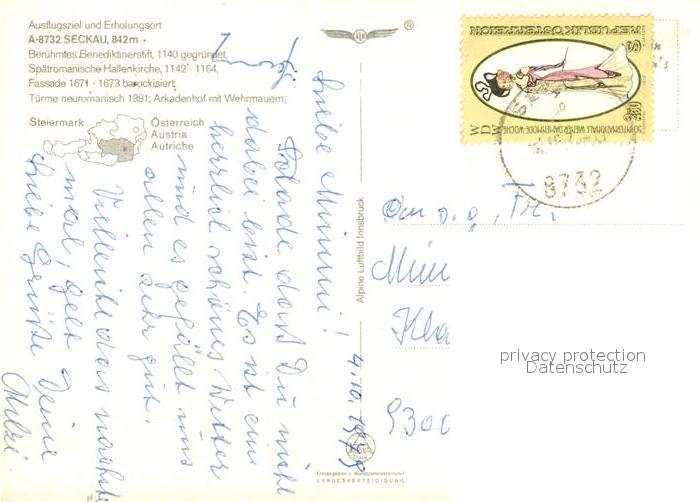 Ausflugsziel und Erholungsort
A-8732 SECKAU, 842 m ·
Berühmtes Benediktinerstift, 1140 gegründet,
Spätromanische Hallenkirche, 1142 - 1164,
Fassade 1671 - 1673 barockisiert,
Türme neuromanisch 1891; Arkadenhof mit Wehrmauern;
Steiermark
Österreich
Austria
Autriche
®
Liebe Mimmi!
Schade daß Du nicht
dabei bist. Es ist ein
herrlich schönes Wetter
und es gefällt uns
allen sehr gut.
Vielleicht das nächste
mal, gelt Deine
Liebe Grüße
4.10.1979
Alpine Luftbild Innsbruck
Freigegeben v. Bundesministerium f.
LANDESVERTEIDIGUNG
REPUBLIK ÖSTERREICH
S 2.50
50 INTERNATIONALE WIENER DAMENMODE-WOCHE
WDW
8732
An
Fr.
Mim
Kla
9300
privacy protection
Datenschutz